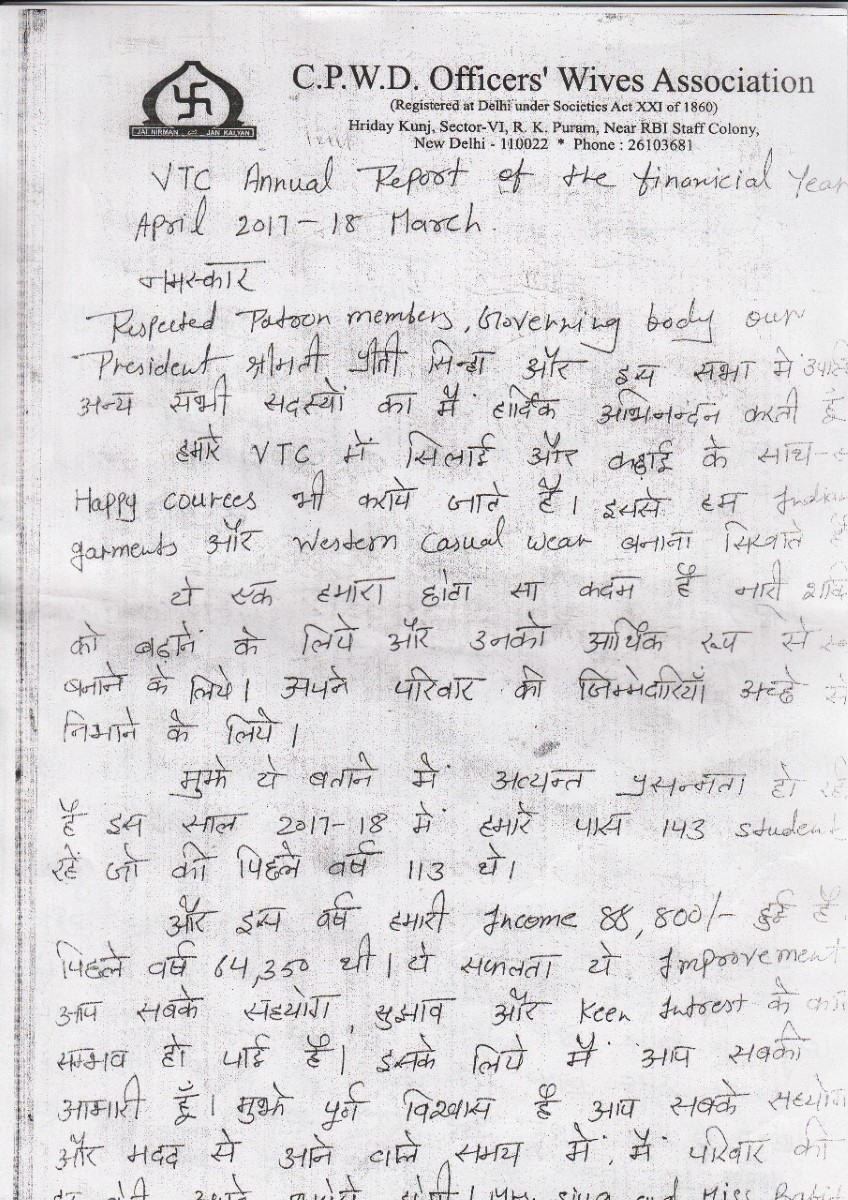 C.P.W.D. Officers' Wives Association
(Registered at Delhi under Societies Act XXI of 1860)
Hriday Kunj, Sector-VI, R. K. Puram, Near RBI Staff Colony,
New Delhi - 110022 * Phone : 26103681
JAI NIRMAN JAN KALYAN
VTC Annual Report of the finanicial Year
April 2017-18 March.
नमस्कार
Respected Patron members, Governing body our
President श्रीमती प्रीती सिन्हा और इस सभा में
अन्य सभी सदस्यों का मैं हार्दिक अभिनन्दन करती हूँ
हमारे VTC में सिलाई और कढ़ाई के साथ-
Happy cources भी कराये जाते है। इससे हम Indian
garments और Western Casual wear बनाना सिखाते है
ये एक हमारा छोटा सा कदम है नारी
को बढ़ाने के लिये और उनको आर्थिक रूप से
बनाने के लिये। अपने परिवार की जिम्मेदारियाँ अच्छे से
निभाने के लिये।
मुझे ये बताने में अत्यन्त प्रसन्नता हो
है इस साल 2017-18 में हमारे पास 143 student
रहें जो की पिछले वर्ष 113 थे।
और इस वर्ष हमारी Income 88,800/- हुई है
पिछले वर्ष 64,350 थी। ये सफलता ये Improvement
आप सबके सहयोग, सुझाव और Keen Interest के
सम्भव हो पाई है। इसके लिये मैं आप सबकी
आभारी हूँ। मुझे पूर्ण विश्वास है आप सबके सहयोग
और मदद से आने वाले समय में, मैं परिवार की